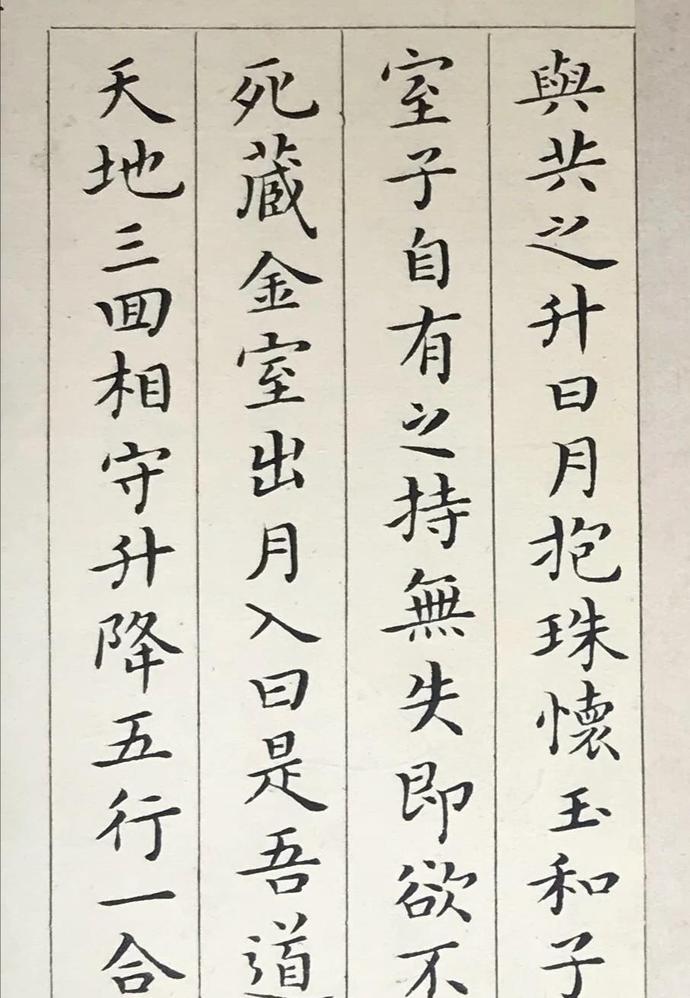 與共之升日月抱珠懷玉和子
室子自有之持無失即欲不
死藏金室出月入日是吾道
天地三回相守升降五行一合